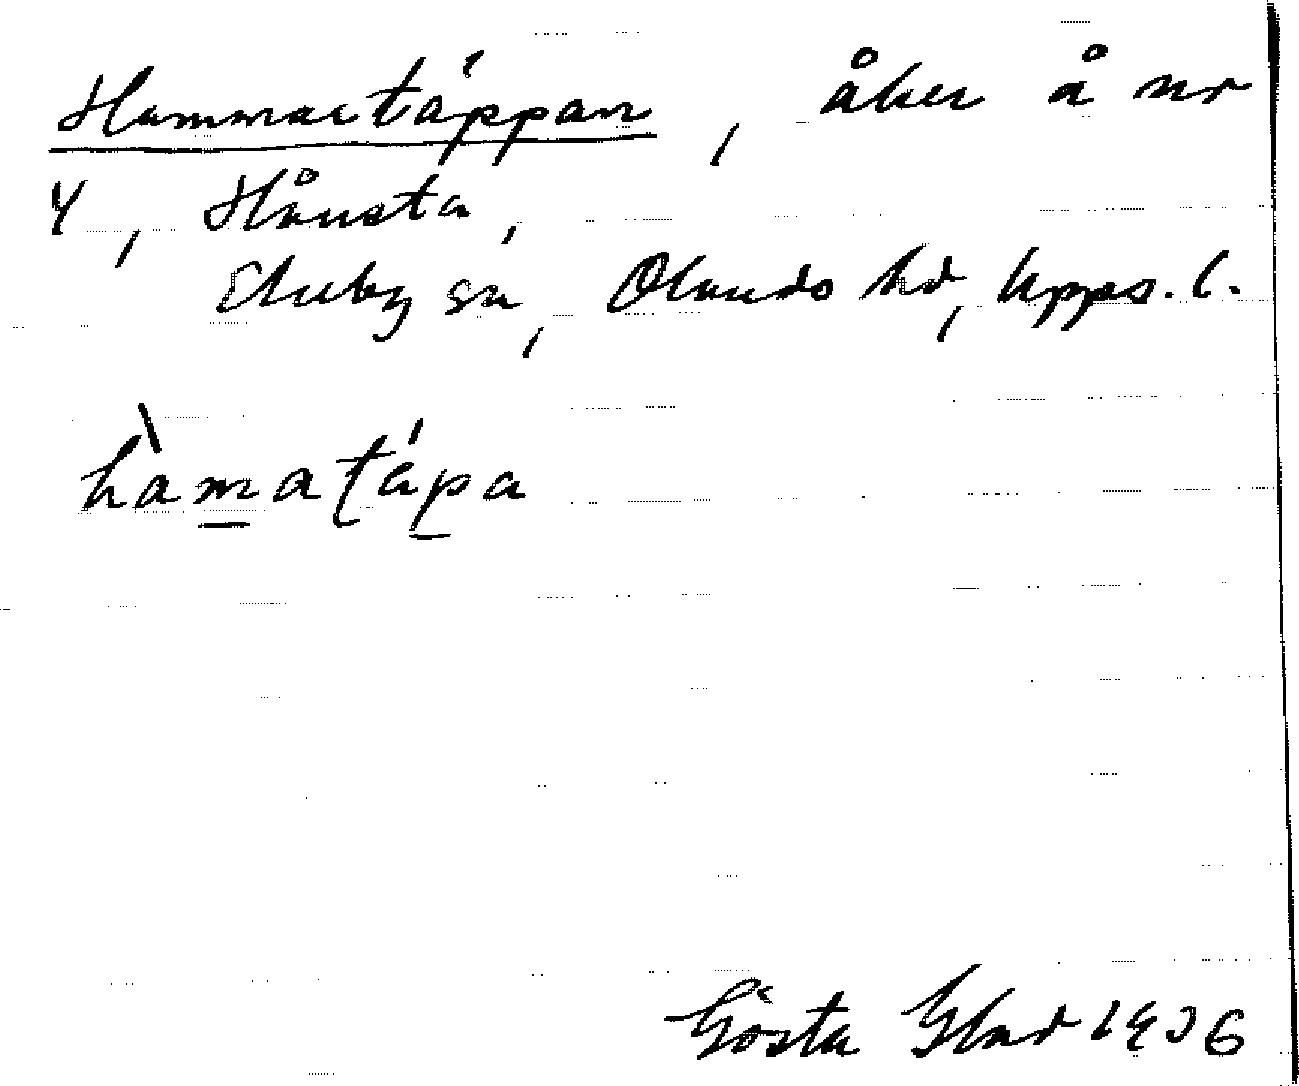 Hammartäppan, åker å nr
4, Hånsta,
Ekeby sn, Olands hd, Upps. l.
hàmatápa
Gösta Glad 1936